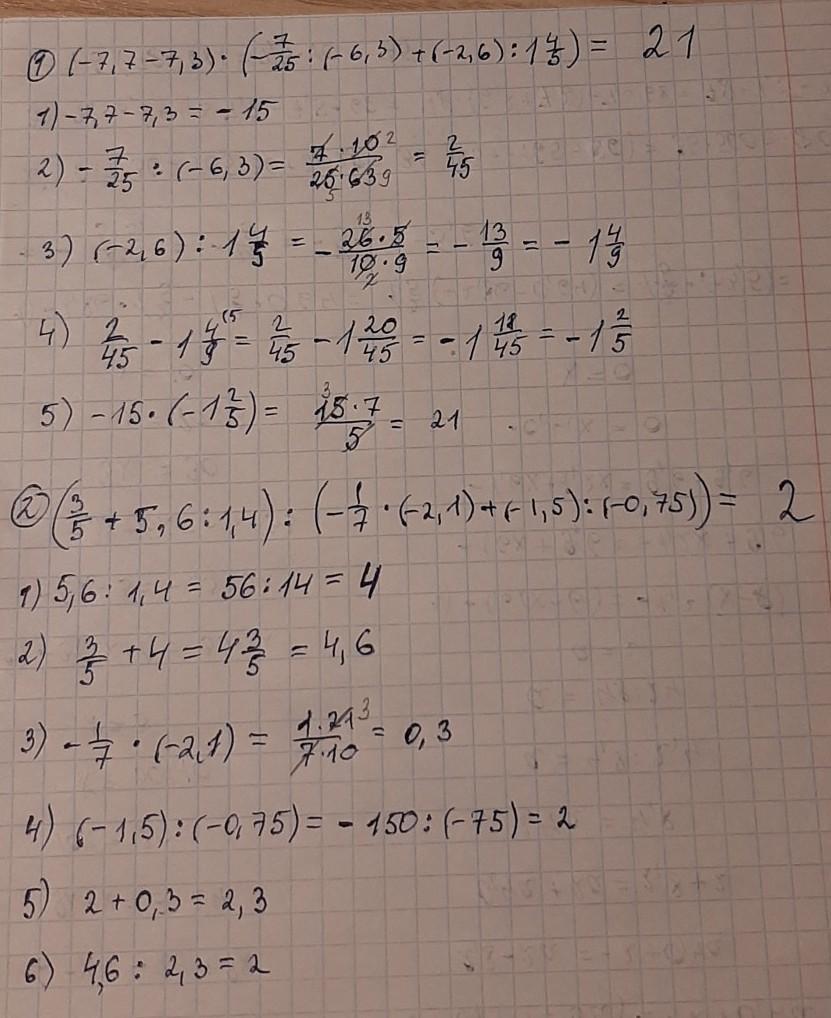 ① (-7,7-7,3)·(-7/25:(-6,3)+(-2,6):1 4/5)= 21
1) -7,7-7,3=-15
2) -7/25:(-6,3)= 7·10 2/25·63 5 9 = 2/45
3) (-2,6):1 4/5 = - 13 26·5/10·9 2 = - 13/9 = - 1 4/9
4) 2/45 - 1 4/9 (5 = 2/45 - 1 20/45 = - 1 18/45 = - 1 2/5
5) -15·(-1 2/5)= 3 15·7/5 = 21
② (3/5+5,6:1,4):(-1/7·(-2,1)+(-1,5):(-0,75))= 2
1) 5,6:1,4=56:14=4
2) 3/5+4=4 3/5=4,6
3) -1/7·(-2,1)= 1·21 3/7·10 = 0,3
4) (-1,5):(-0,75)=-150:(-75)=2
5) 2+0,3=2,3
6) 4,6:2,3=2